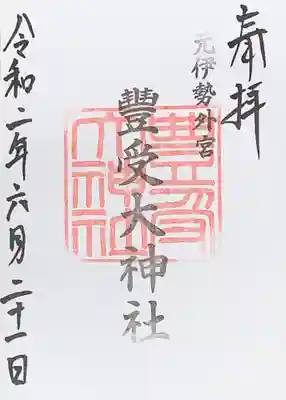 奉拝
元伊勢外宮
豊受大神社
豐受大神社
令和二年六月二十一日